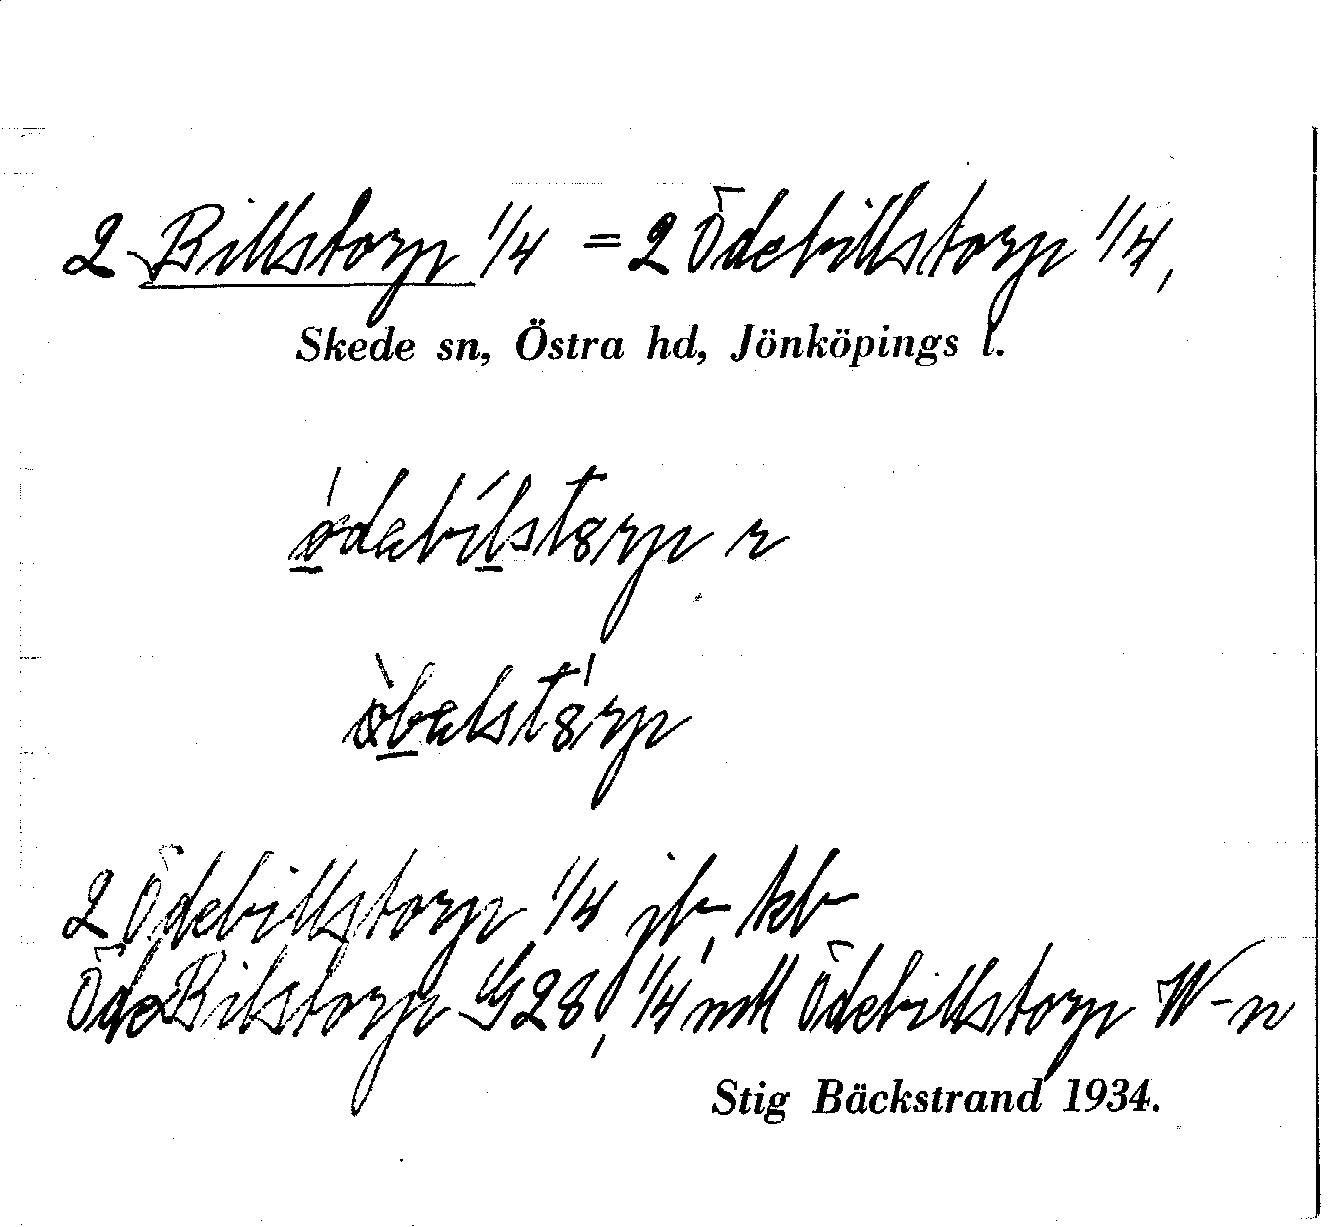 2 Billstorp 1/4 = 2 Ödebillstorp 1/4,
Skede sn, Östra hd, Jönköpings l.
ødəbílstórp r
øbəlstórp
2 Ödebillstorp 1/4 jb, kb
Öde Bilstorp GS 28, 1/4 mtl Ödebillstorp W-n
Stig Bäckstrand 1934.